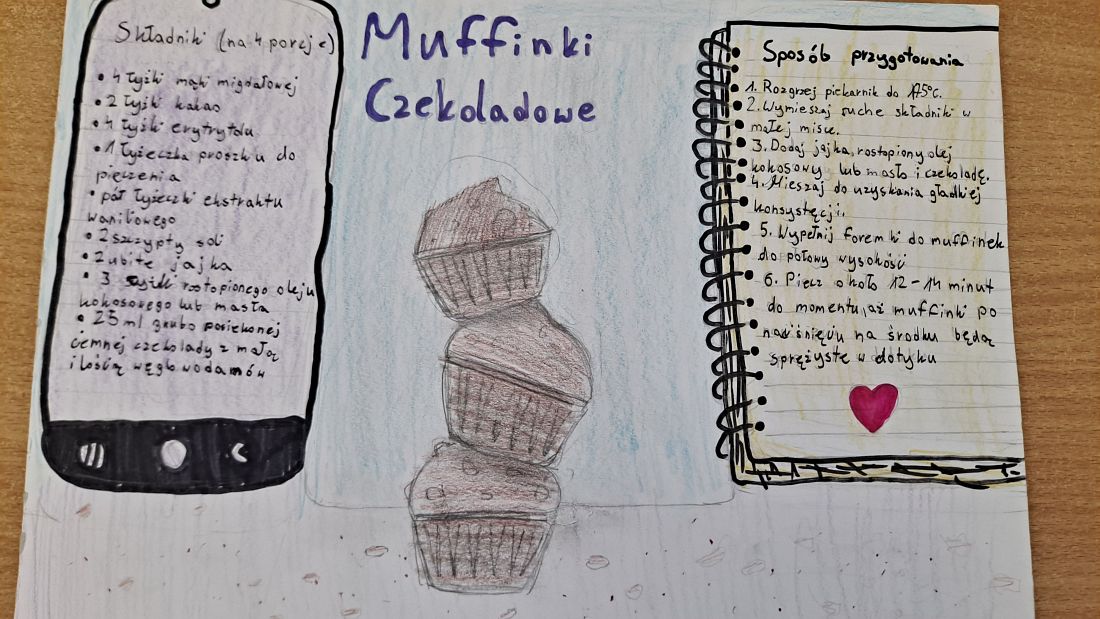 Muffinki
Czekoladowe
Składniki (na 4 porcje)
• 4 łyżki mąki migdałowej
• 2 łyżki kakao
• 4 łyżki erytrytolu
• 1 łyżeczka proszku do
pieczenia
• pół łyżeczki ekstraktu
waniliowego
• 2 szczypty soli
• 2 ubite jajka
• 3 rostopionego oleju
kokosowego lub masła
• 25 ml grubo posiekonej
ciemnej czekolady z małą
ilością węglowodamów
Sposób przygotowania
1. Rozgrzej piekarnik do 175°C.
2. Wymieszaj suche składniki w
małej misce.
3. Dodaj jajka, rostopiony olej
kokosowy lub masło i czekoladę.
4. Mieszaj do uzyskania gładkiej
konsystęcji.
5. Wypełnij foremki do muffinek
do połowy wysokości
6. Piecz około 12-14 minut
do momentu, aż muffinki po
naciśnięciu na środku będą
sprężyste w dotyku